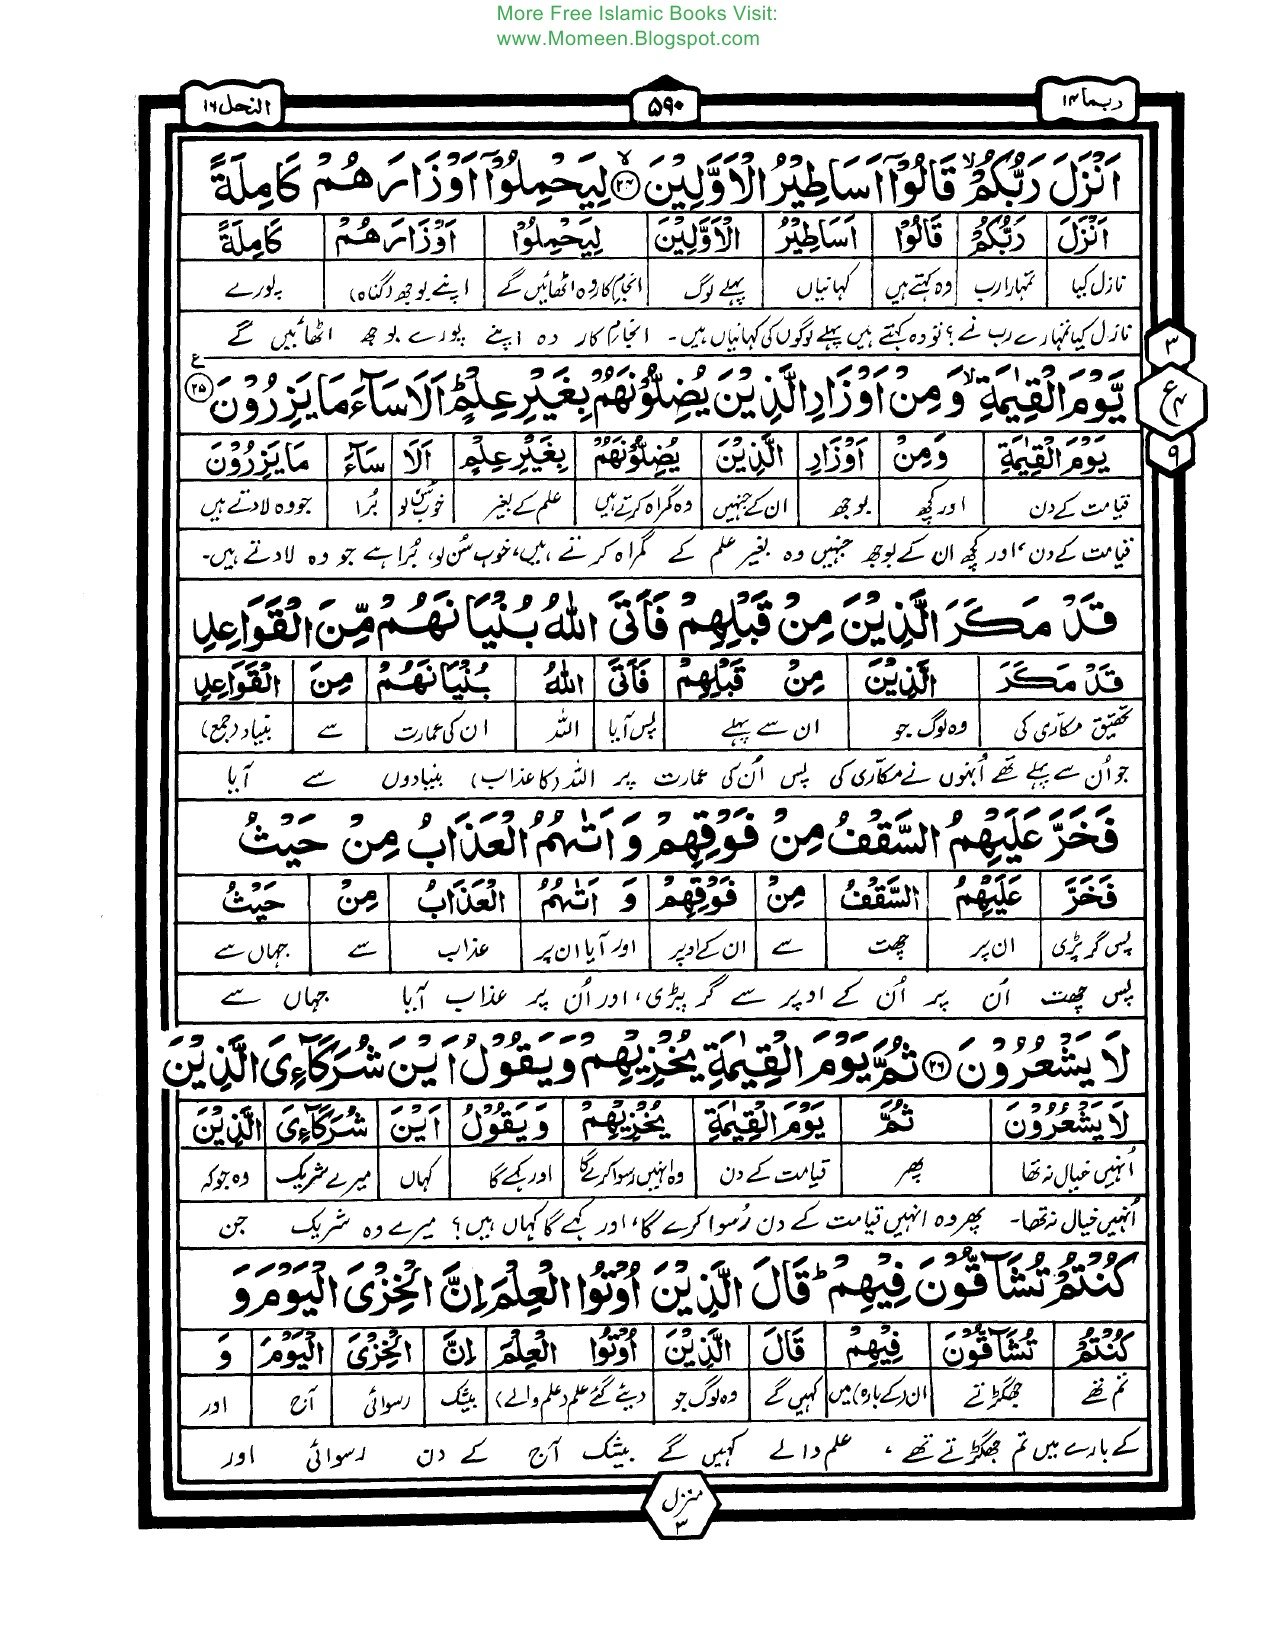 More Free Islamic Books Visit:
www.Momeen.Blogspot.com
ربما ۱۴
۵۹۰
النحل ۱۶
اَنْزَلَ رَبُّكُمْ ۙ قَالُوْۤا اَسَاطِيْرُ الْاَوَّلِيْنَ ۙ﴿۲۴﴾ لِيَحْمِلُوْۤا اَوْزَارَهُمْ كَامِلَةً
اَنْزَلَ رَبُّكُمْ قَالُوْا اَسَاطِيْرُ الْاَوَّلِيْنَ لِيَحْمِلُوْا اَوْزَارَهُمْ كَامِلَةً
نازل کیا تمہارا رب وہ کہتے ہیں کہانیاں پہلے لوگ انجام کار وہ اٹھائیں گے اپنے بوجھ (گناہ) پورے
نازل کیا تمہارے رب نے؟ تو وہ کہتے ہیں پہلے لوگوں کی کہانیاں ہیں۔ انجام کار وہ اپنے پورے بوجھ اٹھائیں گے
۳
يَّوْمَ الْقِيٰمَةِ ۙ وَمِنْ اَوْزَارِ الَّذِيْنَ يُضِلُّوْنَهُمْ بِغَيْرِ عِلْمٍ ؕ اَلَا سَآءَ مَا يَزِرُوْنَ ﴿۲۵﴾ ع
ع
۴
۹
يَوْمَ الْقِيٰمَةِ وَمِنْ اَوْزَارِ الَّذِيْنَ يُضِلُّوْنَهُمْ بِغَيْرِ عِلْمٍ اَلَا سَآءَ مَا يَزِرُوْنَ
قیامت کے دن اور کچھ بوجھ ان کے جنہیں وہ گمراہ کرتے ہیں علم کے بغیر خوب سن لو بُرا جو وہ لادتے ہیں
قیامت کے دن، اور کچھ ان کے بوجھ جنہیں وہ بغیر علم کے گمراہ کرتے ہیں، خوب سُن لو، بُرا ہے جو وہ لادتے ہیں۔
قَدْ مَكَرَ الَّذِيْنَ مِنْ قَبْلِهِمْ فَاَتَى اللّٰهُ بُنْيَانَهُمْ مِّنَ الْقَوَاعِدِ
قَدْ مَكَرَ الَّذِيْنَ مِنْ قَبْلِهِمْ فَاَتَى اللّٰهُ بُنْيَانَهُمْ مِنَ الْقَوَاعِدِ
تحقیق مکاری کی وہ لوگ جو ان سے پہلے پس آیا اللہ ان کی عمارت سے بنیاد (جمع)
جو اُن سے پہلے تھے اُنہوں نے مکاری کی پس اُن کی عمارت پر اللہ (کا عذاب) بنیادوں سے آیا
فَخَرَّ عَلَيْهِمُ السَّقْفُ مِنْ فَوْقِهِمْ وَ اَتٰىهُمُ الْعَذَابُ مِنْ حَيْثُ
فَخَرَّ عَلَيْهِمُ السَّقْفُ مِنْ فَوْقِهِمْ وَ اَتٰىهُمُ الْعَذَابُ مِنْ حَيْثُ
پس گر پڑی ان پر چھت سے ان کے اوپر اور آیا ان پر عذاب سے جہاں سے
پس چھت اُن پر اُن کے اوپر سے گر پڑی، اور اُن پر عذاب آیا جہاں سے
لَا يَشْعُرُوْنَ ﴿۲۶﴾ ثُمَّ يَوْمَ الْقِيٰمَةِ يُخْزِيْهِمْ وَيَقُوْلُ اَيْنَ شُرَكَآءِىَ الَّذِيْنَ
لَا يَشْعُرُوْنَ ثُمَّ يَوْمَ الْقِيٰمَةِ يُخْزِيْهِمْ وَيَقُوْلُ اَيْنَ شُرَكَآءِىَ الَّذِيْنَ
اُنہیں خیال نہ تھا پھر قیامت کے دن وہ انہیں رسوا کرے گا اور کہے گا کہاں میرے شریک وہ جو کہ
اُنہیں خیال نہ تھا۔ پھر وہ انہیں قیامت کے دن رُسوا کرے گا، اور کہے گا کہاں ہیں؟ میرے وہ شریک جن
كُنْتُمْ تُشَآقُّوْنَ فِيْهِمْ ؕ قَالَ الَّذِيْنَ اُوْتُوا الْعِلْمَ اِنَّ الْخِزْىَ الْيَوْمَ وَ
كُنْتُمْ تُشَآقُّوْنَ فِيْهِمْ قَالَ الَّذِيْنَ اُوْتُوا الْعِلْمَ اِنَّ الْخِزْىَ الْيَوْمَ وَ
تم تھے جھگڑتے ان (کے بارہ) میں کہیں گے وہ لوگ جو دیئے گئے علم (علم والے) بیشک رسوائی آج اور
کے بارے میں تم جھگڑتے تھے، علم والے کہیں گے بیشک آج کے دن رسوائی اور
منزل
۳